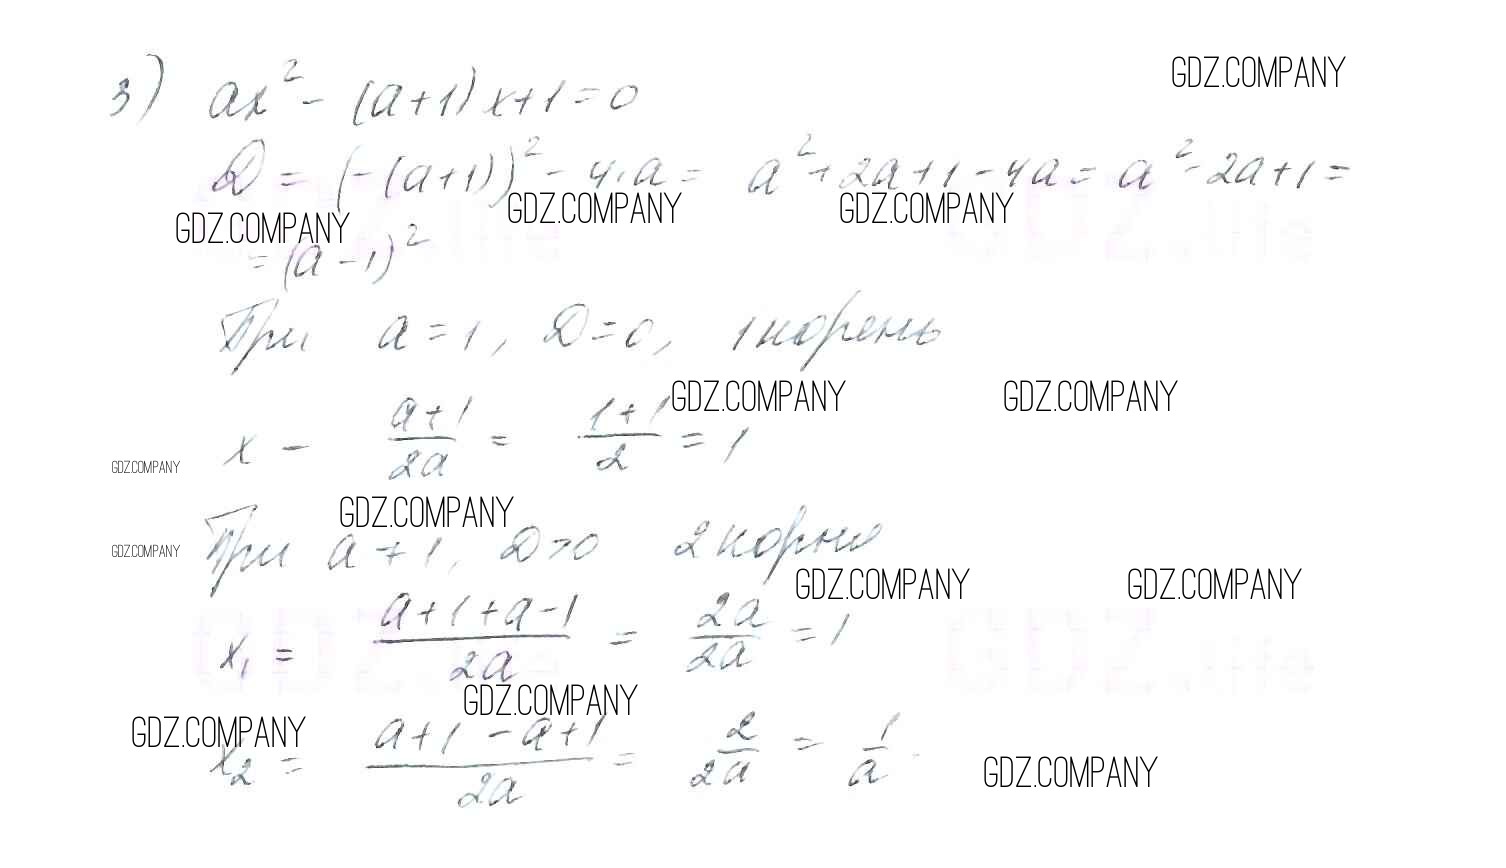 GDZ.COMPANY
3) ax² - (a+1)x+1=0
D = (-(a+1))² - 4·a = a²+2a+1-4a = a²-2a+1=
GDZ.COMPANY GDZ.COMPANY GDZ.COMPANY
= (a-1)²
При a=1, D=0, 1 корень
GDZ.COMPANY GDZ.COMPANY
x - \frac{a+1}{2a} = \frac{1+1}{2} = 1
GDZ.COMPANY
GDZ.COMPANY
При a ≠ 1, D>0 2 корня
GDZ.COMPANY
GDZ.COMPANY GDZ.COMPANY
x₁ = \frac{a+1+a-1}{2a} = \frac{2a}{2a} = 1
GDZ.COMPANY
GDZ.COMPANY
x₂ = \frac{a+1-a+1}{2a} = \frac{2}{2a} = \frac{1}{a}
GDZ.COMPANY